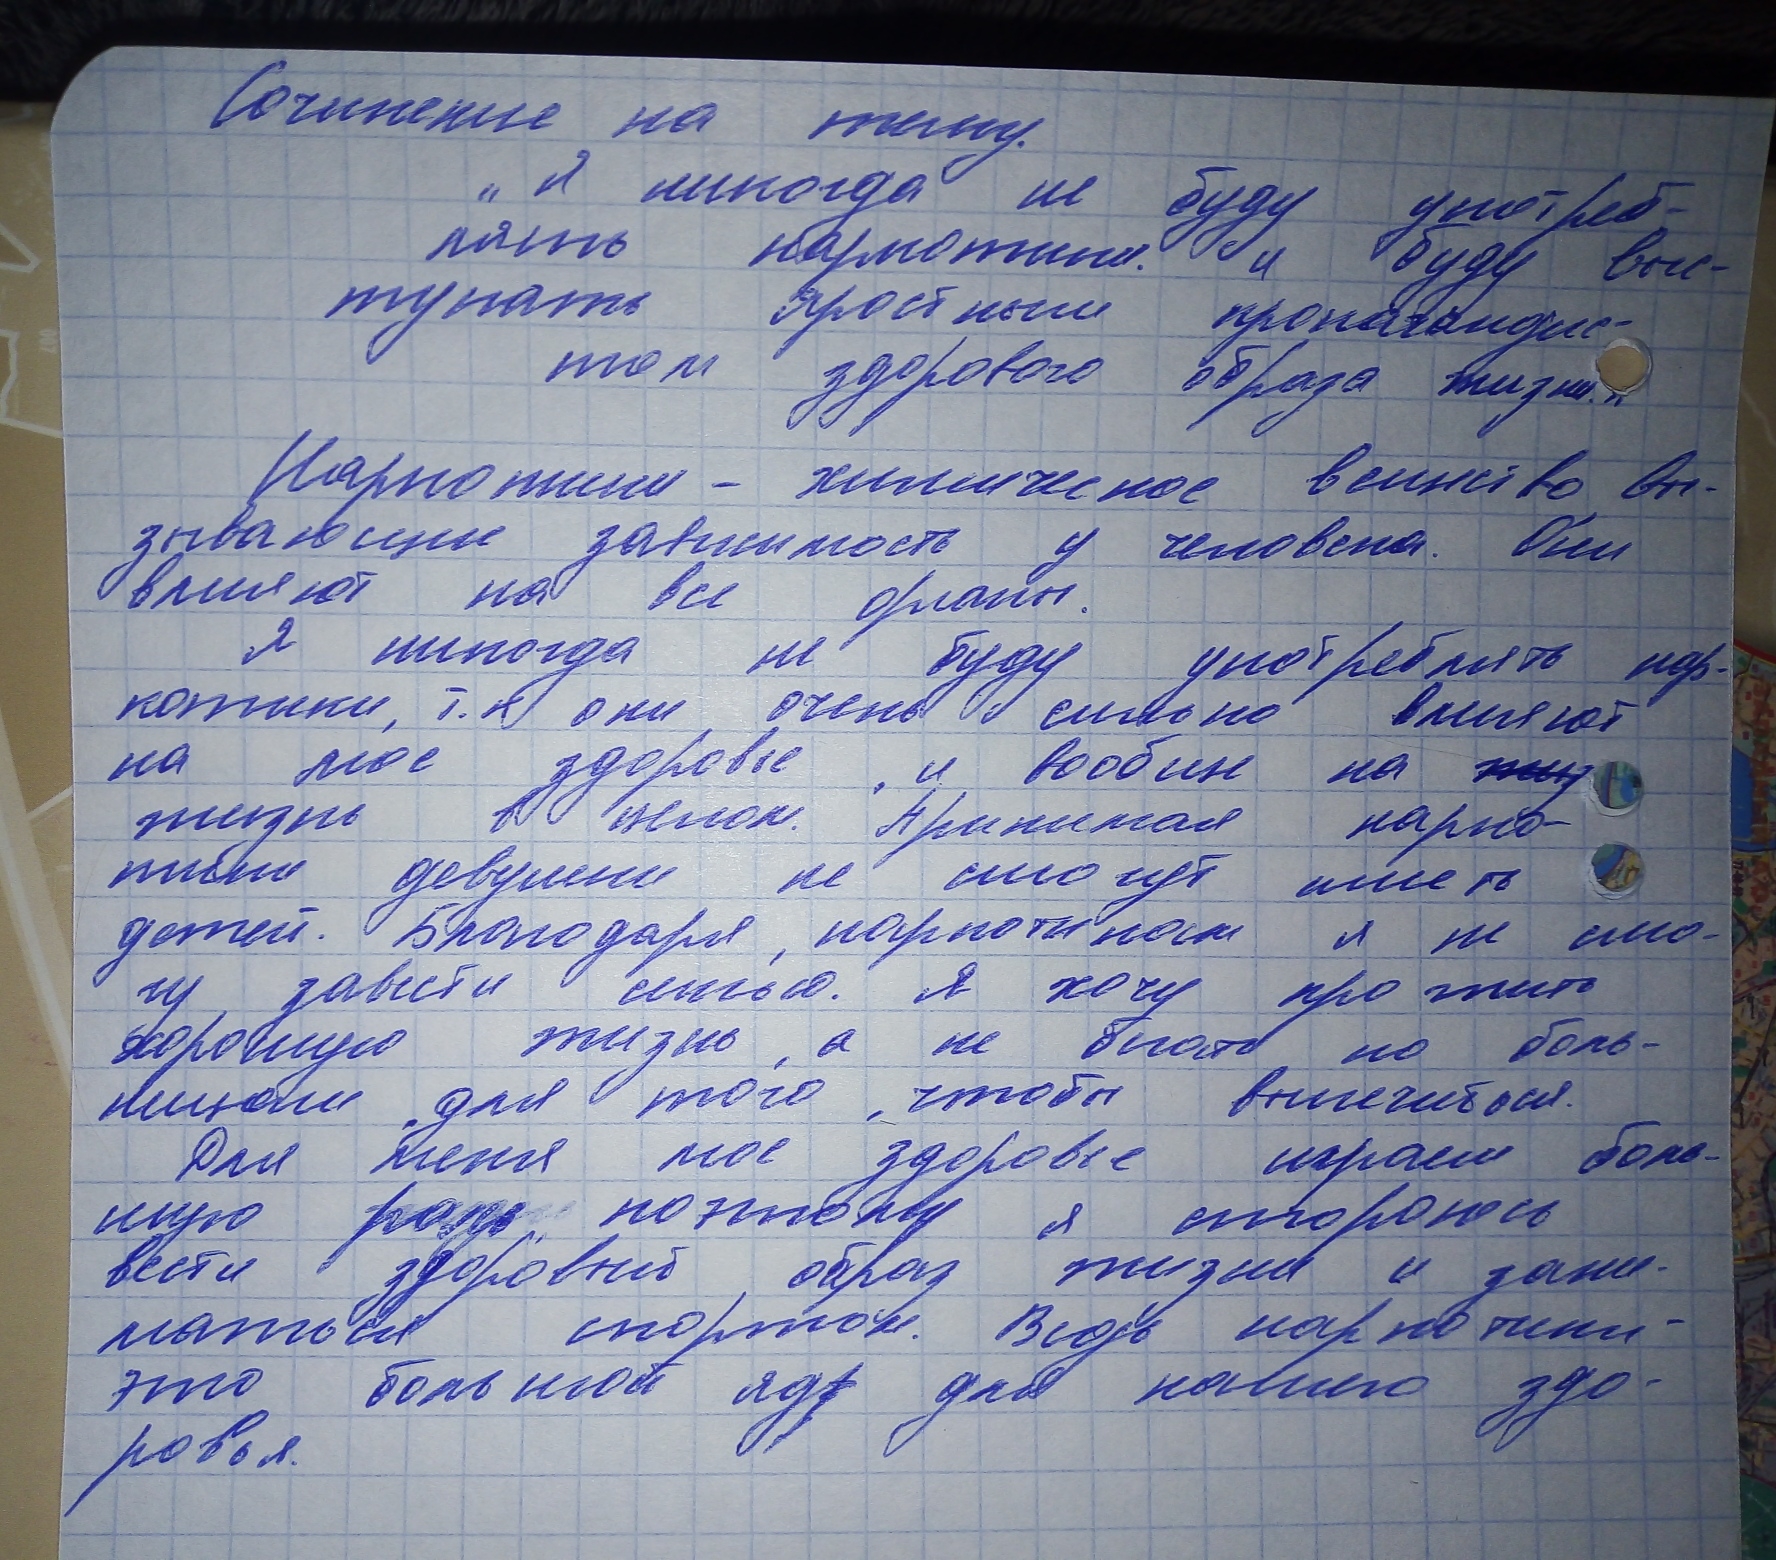 Сочинение на тему.
„Я никогда не буду употреб-
лять наркотики. и буду выс-
тупать яростным пропагандис-
том здорового образа жизни."
Наркотики – химическое вещество вы-
зывающие зависимость у человека. Они
влияют на все органы.
Я никогда не буду употреблять нар-
котики, т.к они очень сильно влияют
на мое здоровье, и вообще на
жизнь в целом. Принимая нарко-
тики девушки не смогут иметь
детей. Благодаря, наркотикам я не смо-
гу завести семью. Я хочу прожить
хорошую жизнь, а не бегать по боль-
ницам, для того, чтобы вылечиться.
Для меня мое здоровье играет боль-
шую роль, поэтому я сторонюсь
вести здоровый образ жизни и зани-
маться спортом. Ведь наркотики-
это большой яд для нашего здо-
ровья.